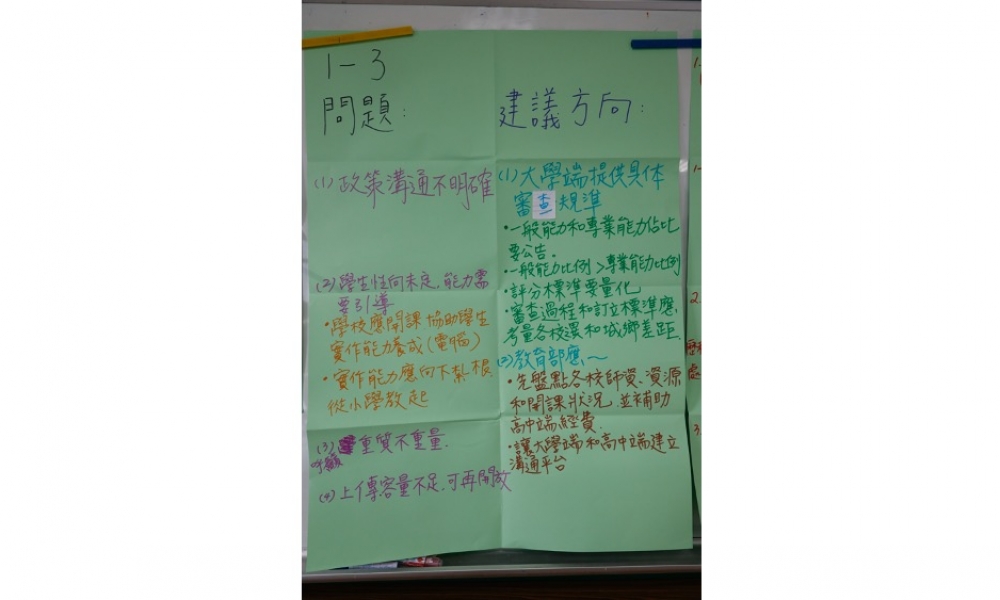 1-3
問題:
(1)政策溝通不明確
(2)學生性向未定,能力需
要引導
·學校應開課協助學生
實作能力養成(電腦)
·實作能力應向下紮根
從小學教起
(3)重質不重量.
呼籲
(4)上傳容量不足,可再開放
建議方向:
(1)大學端提供具体
審查規準
·一般能力和專業能力佔比
要公告.
·一般能力比例>專業能力比例
·評分標準要量化
·審查過程和訂立標準應
考量各校異和城鄉差距.
(2)教育部應~
·先盤點各校師資、資源
和開課狀況,並補助
高中端經費.
·讓大學端和高中端建立
溝通平台